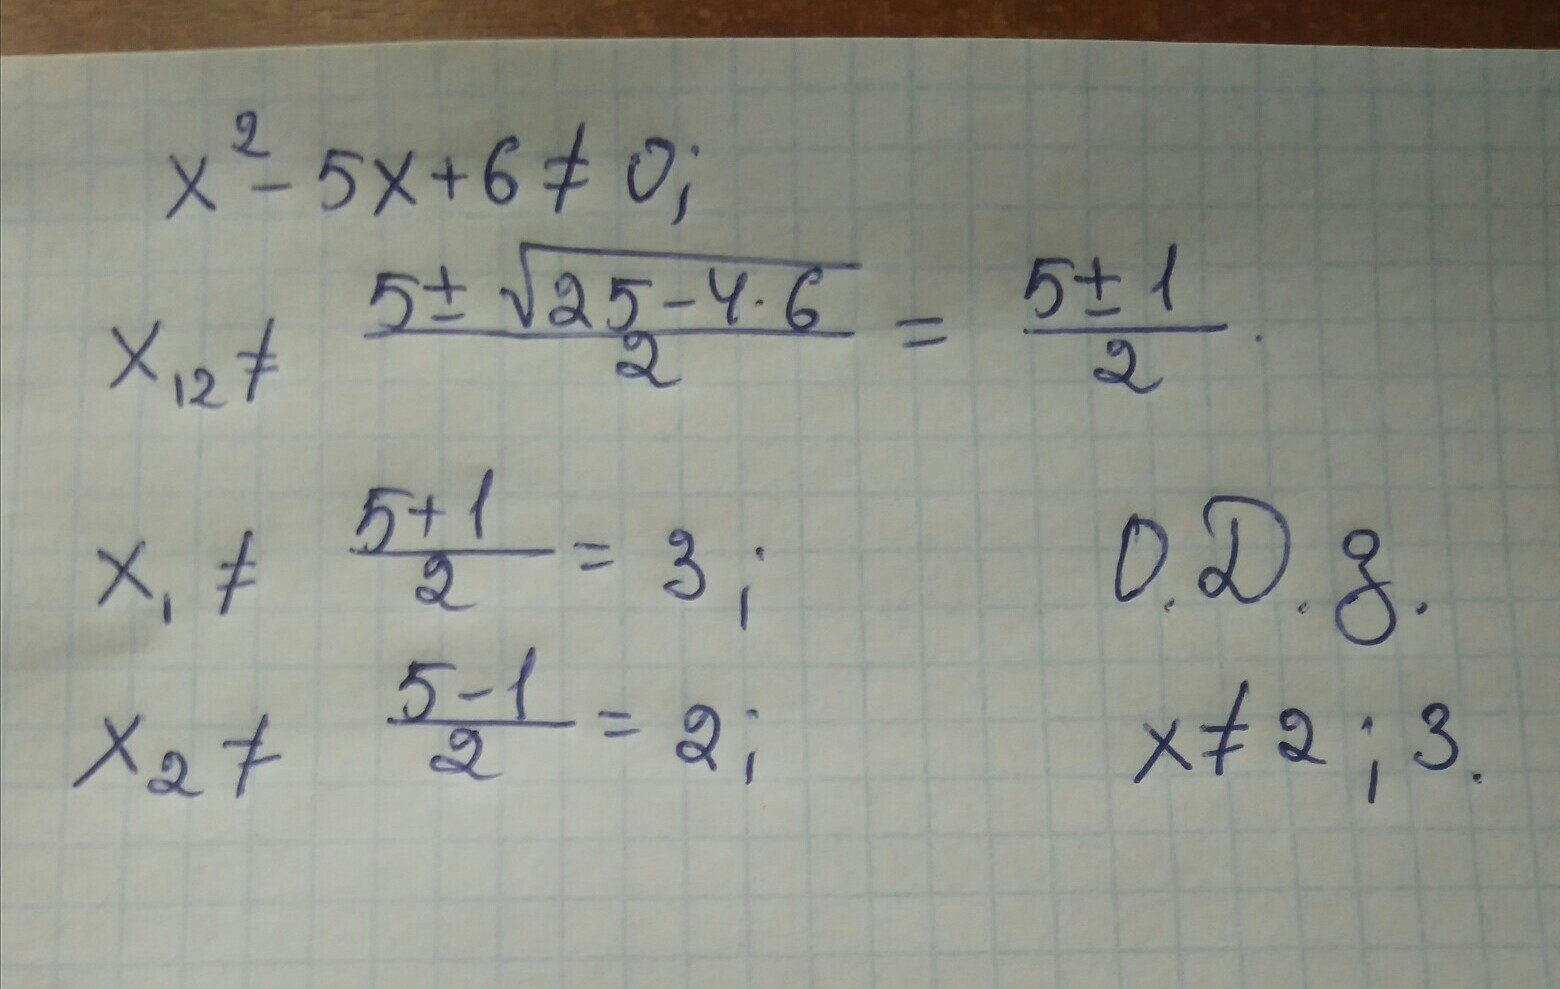 x² - 5x + 6 ≠ 0;
x₁₂ ≠ (5 ± √(25 - 4 · 6))/2 = (5 ± 1)/2.
x₁ ≠ (5 + 1)/2 = 3;
x₂ ≠ (5 - 1)/2 = 2;
О.Д.З.
x ≠ 2; 3.